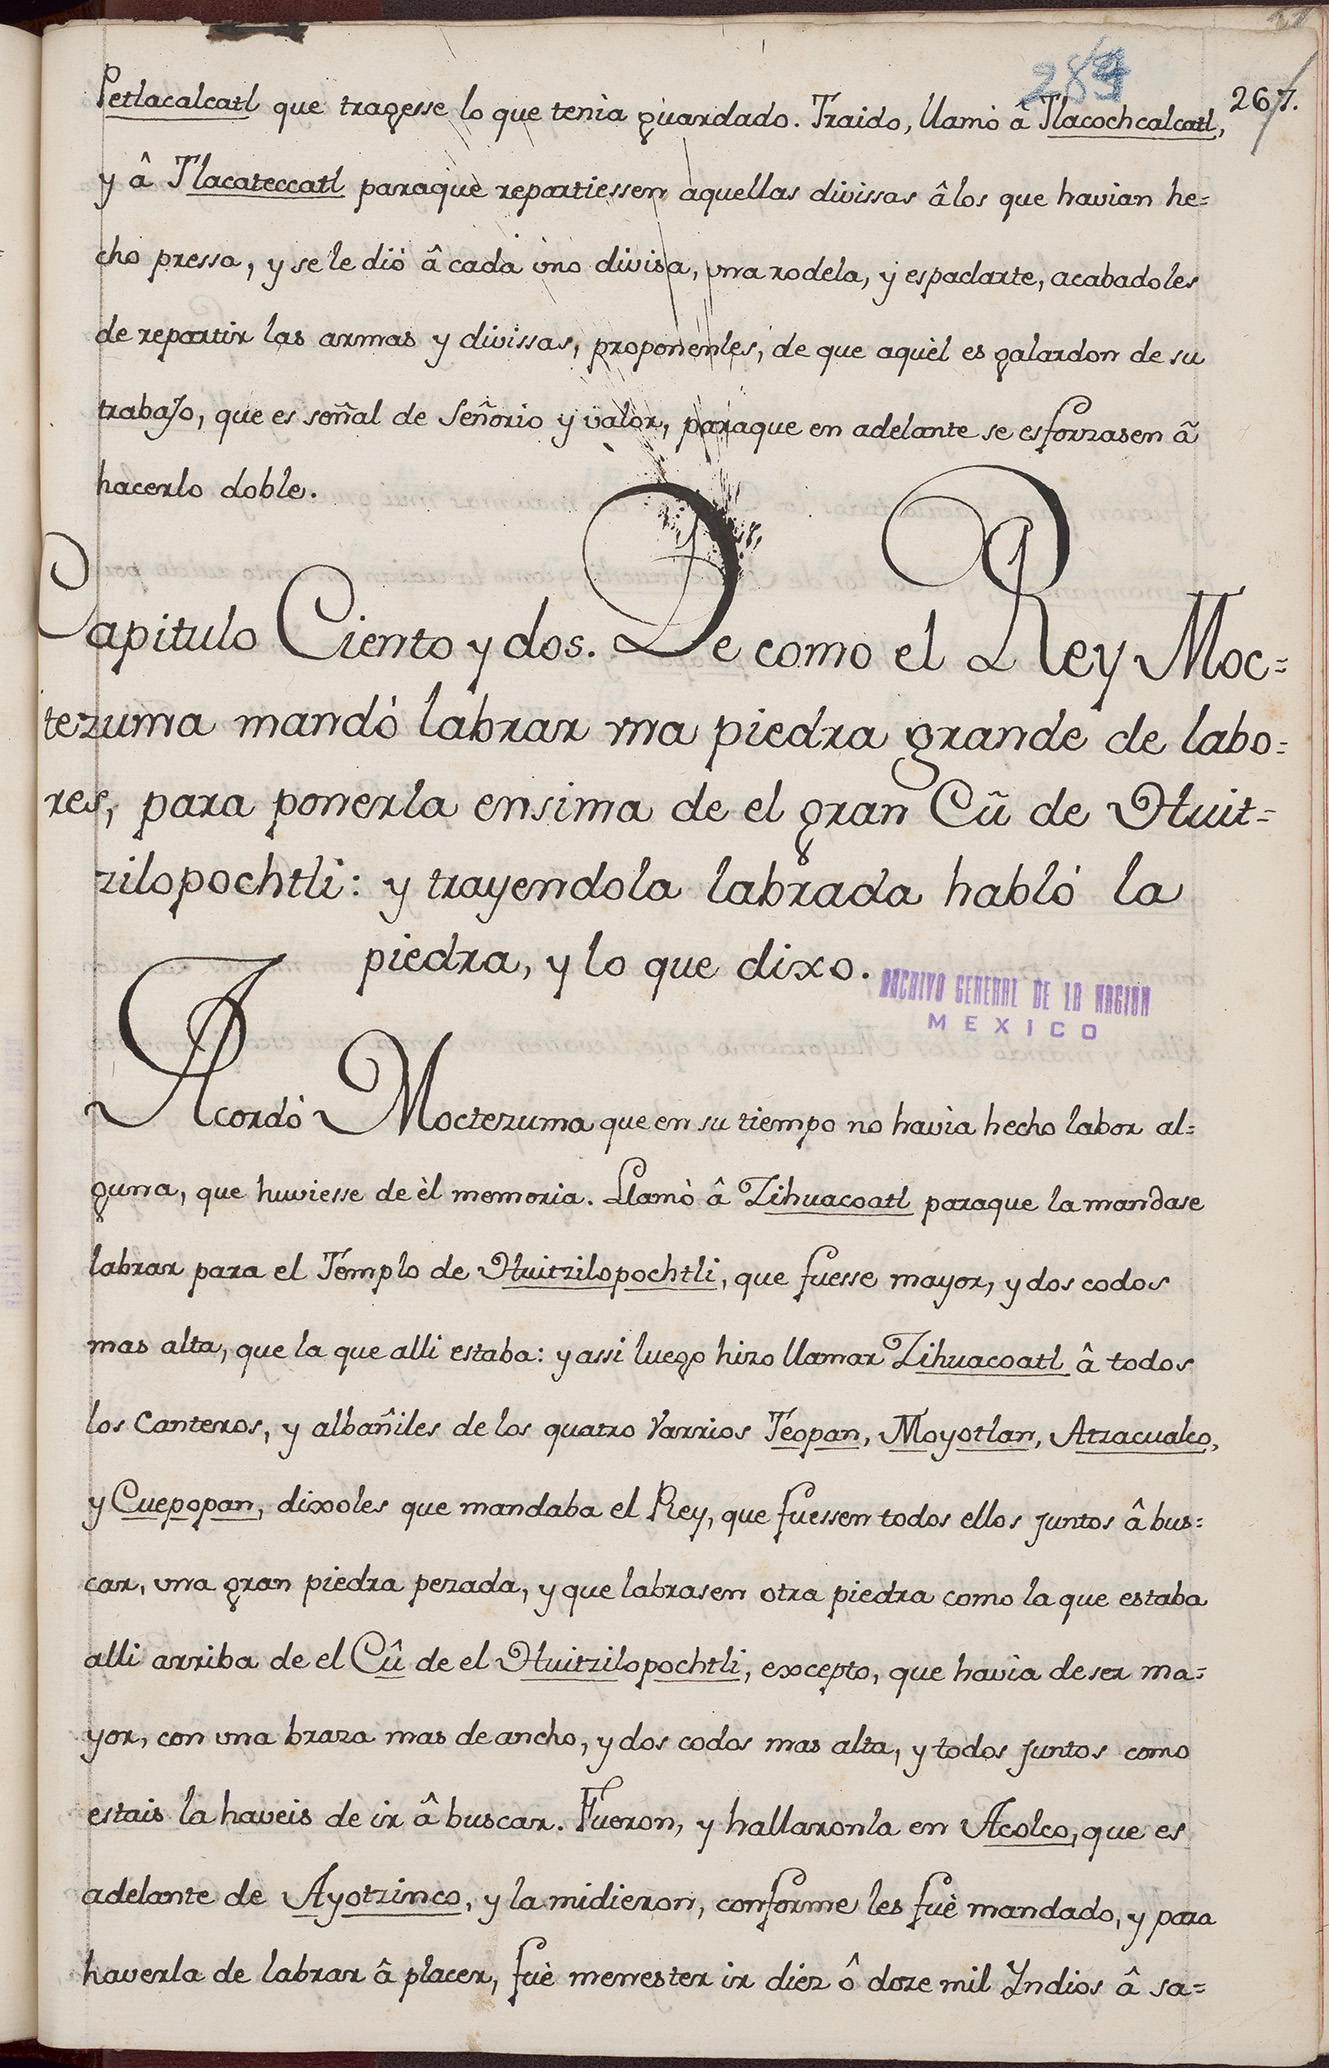 267.
Petlacalcatl que tragesse lo que tenìa guardado. Traido, llamò â Tlacochcalcatl,
y â Tlacateccatl paraquè repartiessen aquellas divissas â los que havian he=
cho pressa, y se le diò â cada vno divisa, vna rodela, y espadarte, acabadoles
de repartir las armas y divissas, proponenles, de que aquèl es galardon de su
trabajo, que es señal de Señorio y valor, paraque en adelante se esforzasen â
hacerlo doble.
Capitulo Ciento y dos. De como el Rey Moc=
tezuma mandó labrar vna piedra grande de labo=
res, para ponerla ensima de el gran Cũ de Huit=
zilopochtli: y trayendola labrada habló la
piedra, y lo que dixo.
ARCHIVO GENERAL DE LA NACION
MEXICO
Acordò Moctezuma que en su tiempo no havìa hecho labor al=
guna, que huviesse de èl memoria. Llamò â Zihuacoatl paraque la mandase
labrar para el Templo de Huitzilopochtli, que fuesse mayor, y dos codos
mas alta, que la que alli estaba: y assi luego hizo llamar Zihuacoatl â todos
los Canteros, y albañiles de los quatro Varrios Teopan, Moyotlan, Atzacualco,
y Cuepopan, dixoles que mandaba el Rey, que fuessen todos ellos juntos â bus=
car, vna gran piedra pezada, y que labrasen otra piedra como la que estaba
alli arriba de el Cû de el Huitzilopochtli, excepto, que havìa de ser ma=
yor, con vna braza mas de ancho, y dos codos mas alta, y todos juntos como
estais la haveis de ir â buscar. Fueron, y hallaronla en Acolco, que es
adelante de Ayotzinco, y la midieron, conforme les fuè mandado, y para
haverla de labrar â placer, fuè menester ir diez ô doze mil Yndios â sa=